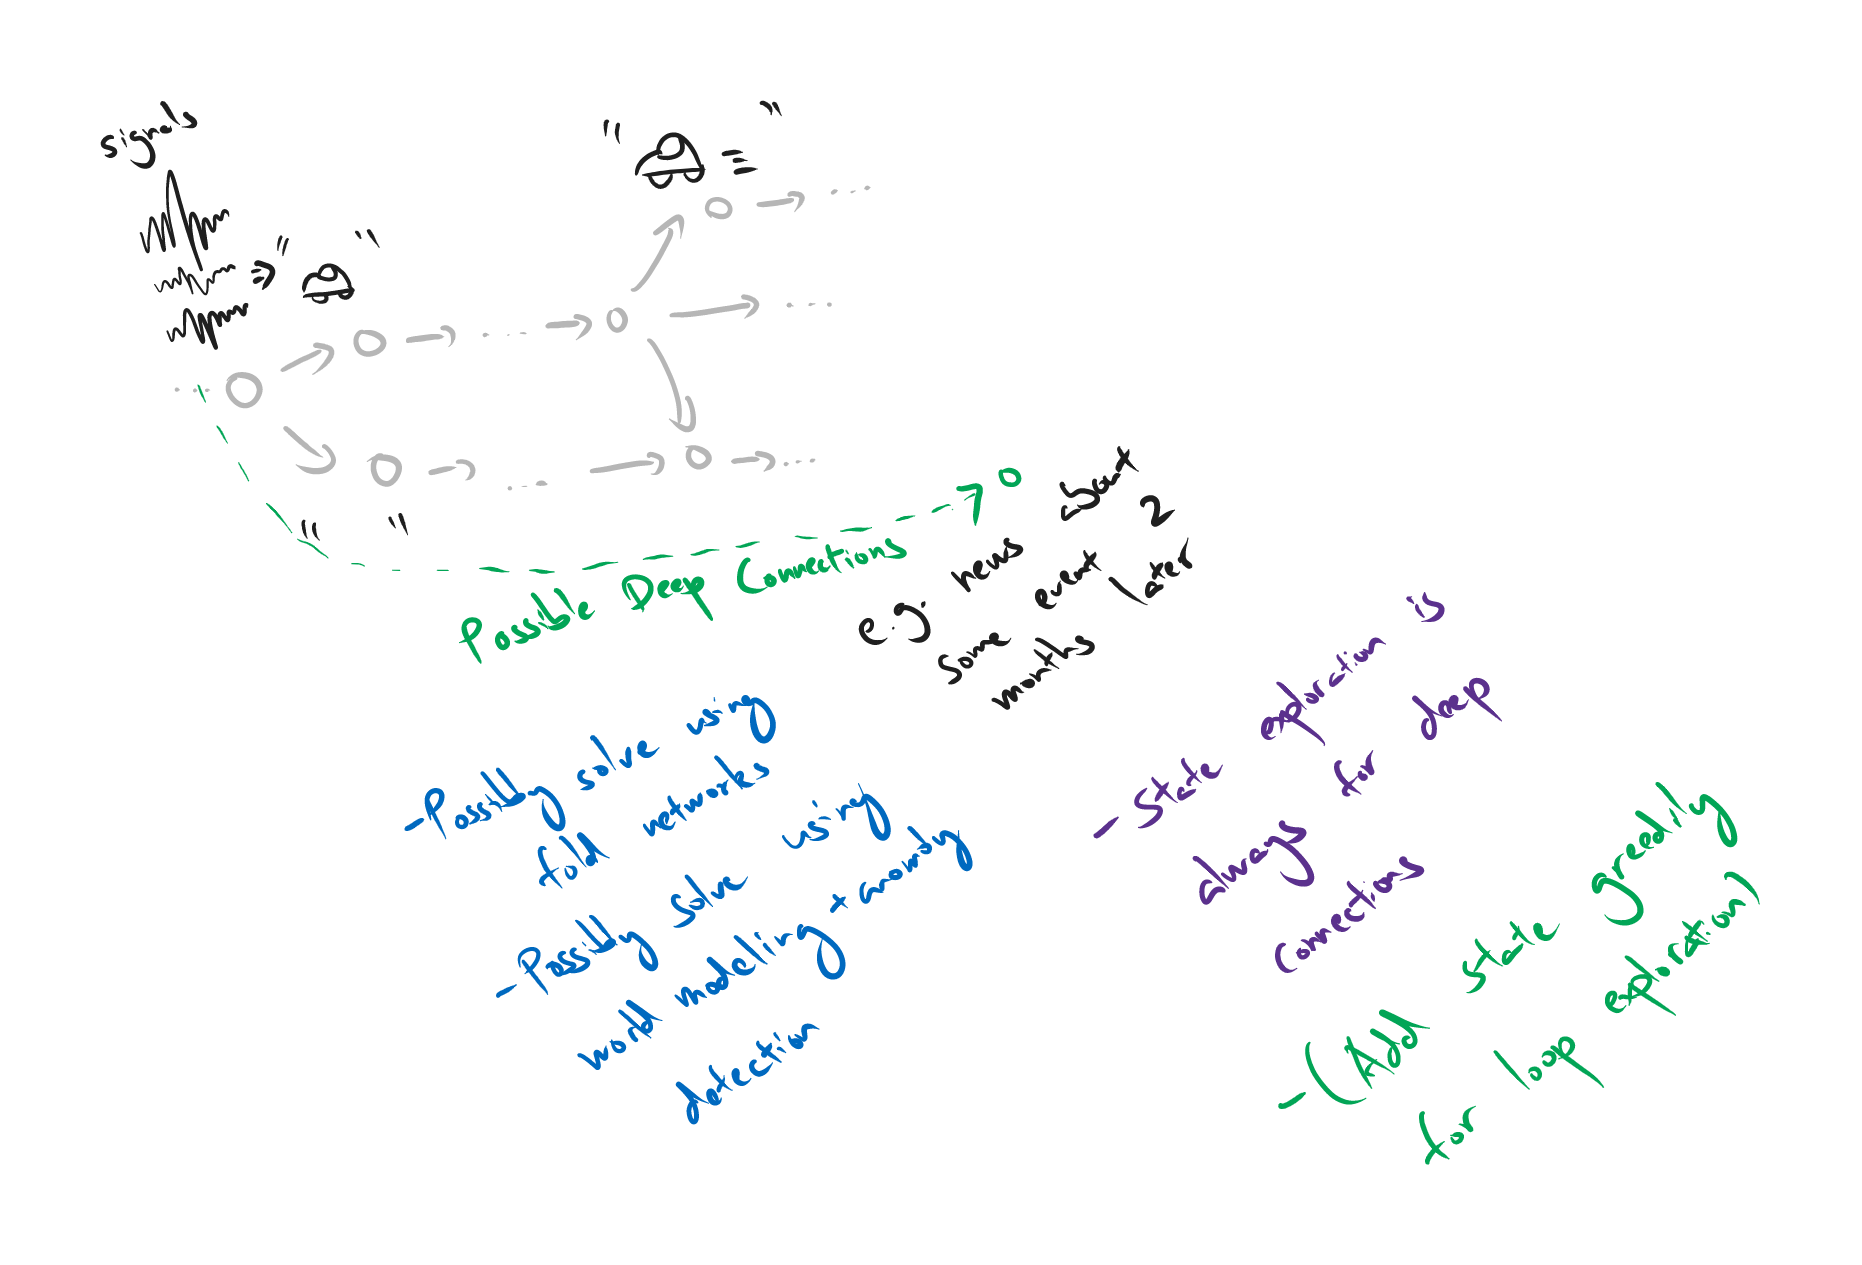 signals
" "
" "
" "
Possible Deep Connections
e.g. news about
some event 2
months later
-Possibly solve using
fold networks
-Possibly solve using
world modeling + anomaly
detection
-State exploration is
always for deep
connections
-(Add state greedily
for loop exploration)